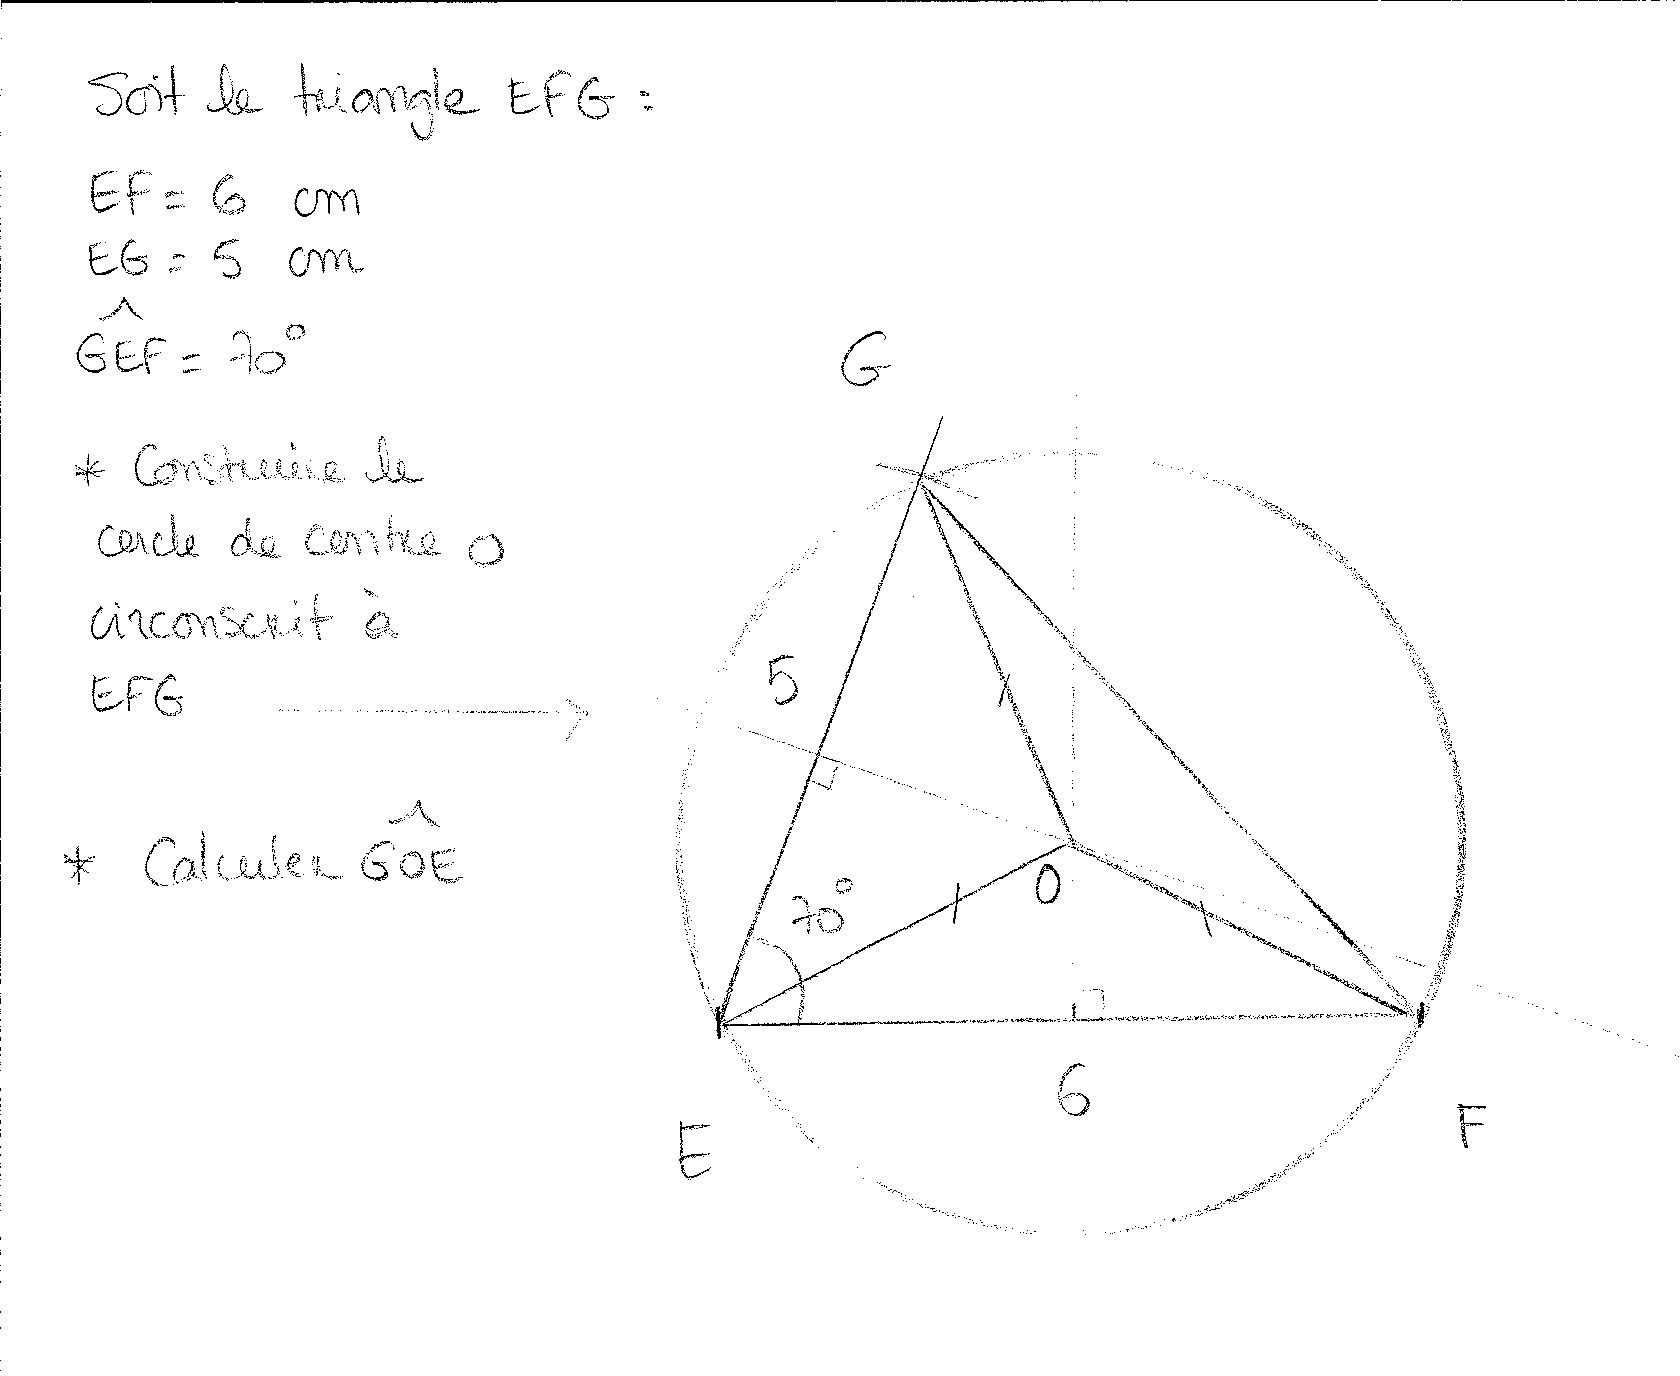 Soit le triangle EFG :
EF = 6 cm
EG = 5 cm
GEF = 70°
* Construire le
cercle de centre O
circonscrit à
EFG
* Calculer GOE
G
5
70°
O
6
E
F